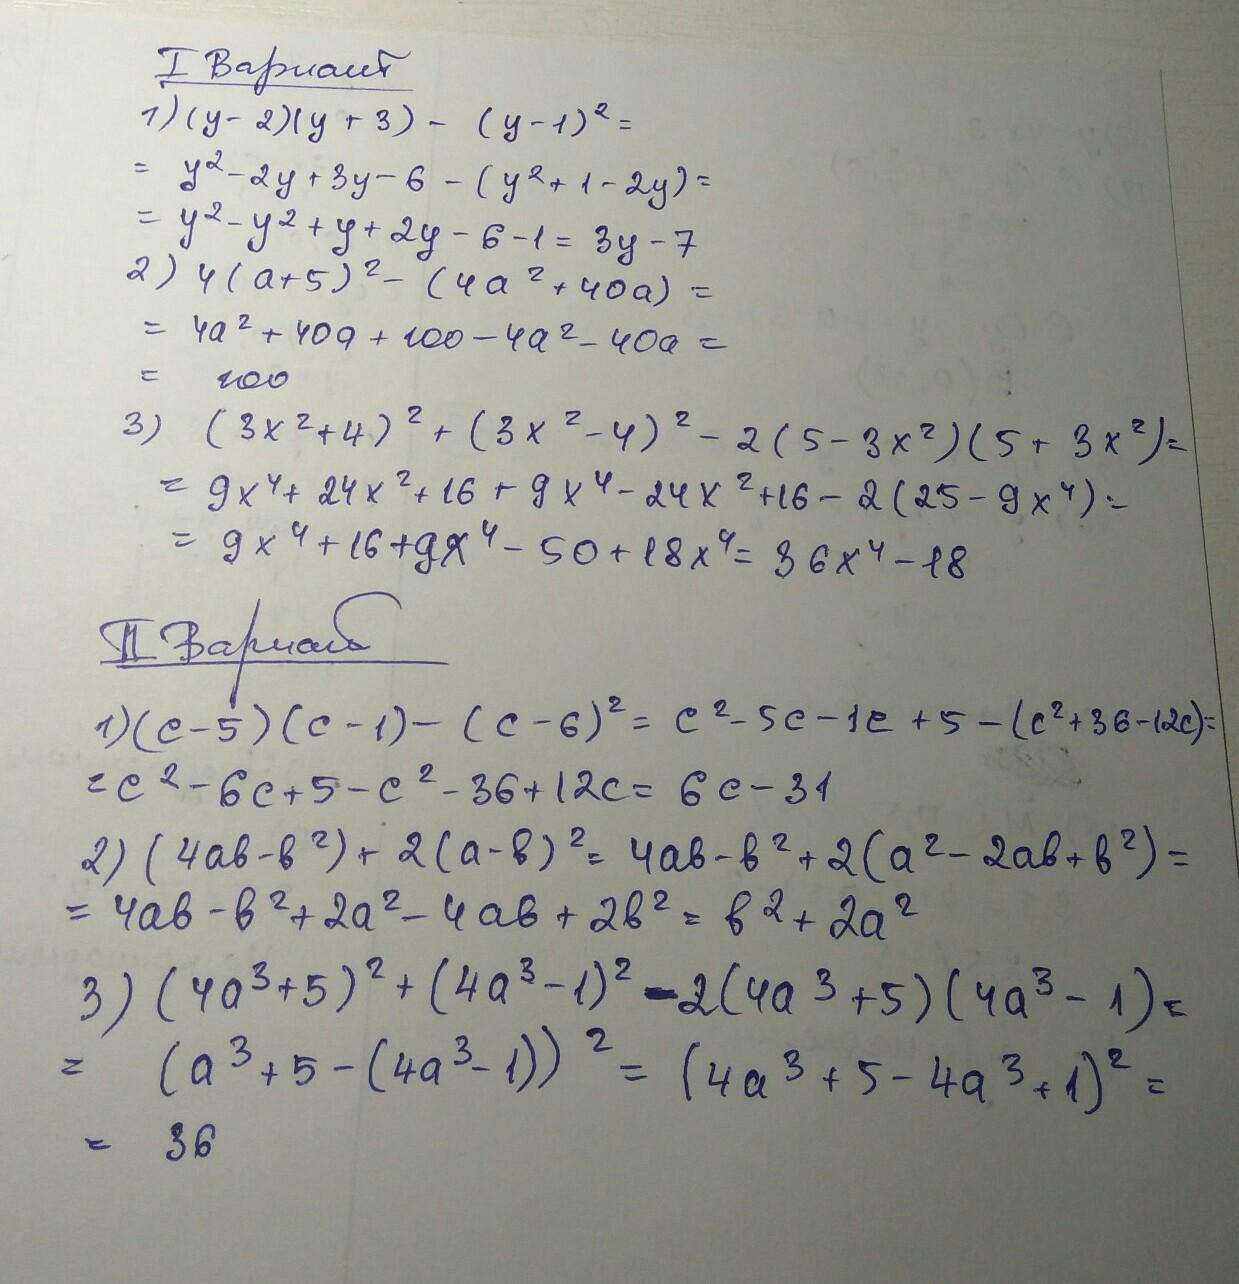 I Вариант
1) (y - 2)(y + 3) - (y - 1)² =
= y² - 2y + 3y - 6 - (y² + 1 - 2y) =
= y² - y² + y + 2y - 6 - 1 = 3y - 7
2) 4(a+5)² - (4a² + 40a) =
= 4a² + 40a + 100 - 4a² - 40a =
= 100
3) (3x² + 4)² + (3x² - 4)² - 2(5 - 3x²)(5 + 3x²) =
= 9x⁴ + 24x² + 16 + 9x⁴ - 24x² + 16 - 2(25 - 9x⁴) -
= 9x⁴ + 16 + 9x⁴ - 50 + 18x⁴ = 36x⁴ - 18
II Вариант
1) (c - 5)(c - 1) - (c - 6)² = c² - 5c - 1c + 5 - (c² + 36 - 12c) =
= c² - 6c + 5 - c² - 36 + 12c = 6c - 31
2) (4ab - b²) + 2(a - b)² = 4ab - b² + 2(a² - 2ab + b²) =
= 4ab - b² + 2a² - 4ab + 2b² = b² + 2a²
3) (4a³ + 5)² + (4a³ - 1)² - 2(4a³ + 5)(4a³ - 1) =
= (a³ + 5 - (4a³ - 1))² = (4a³ + 5 - 4a³ + 1)² =
= 36